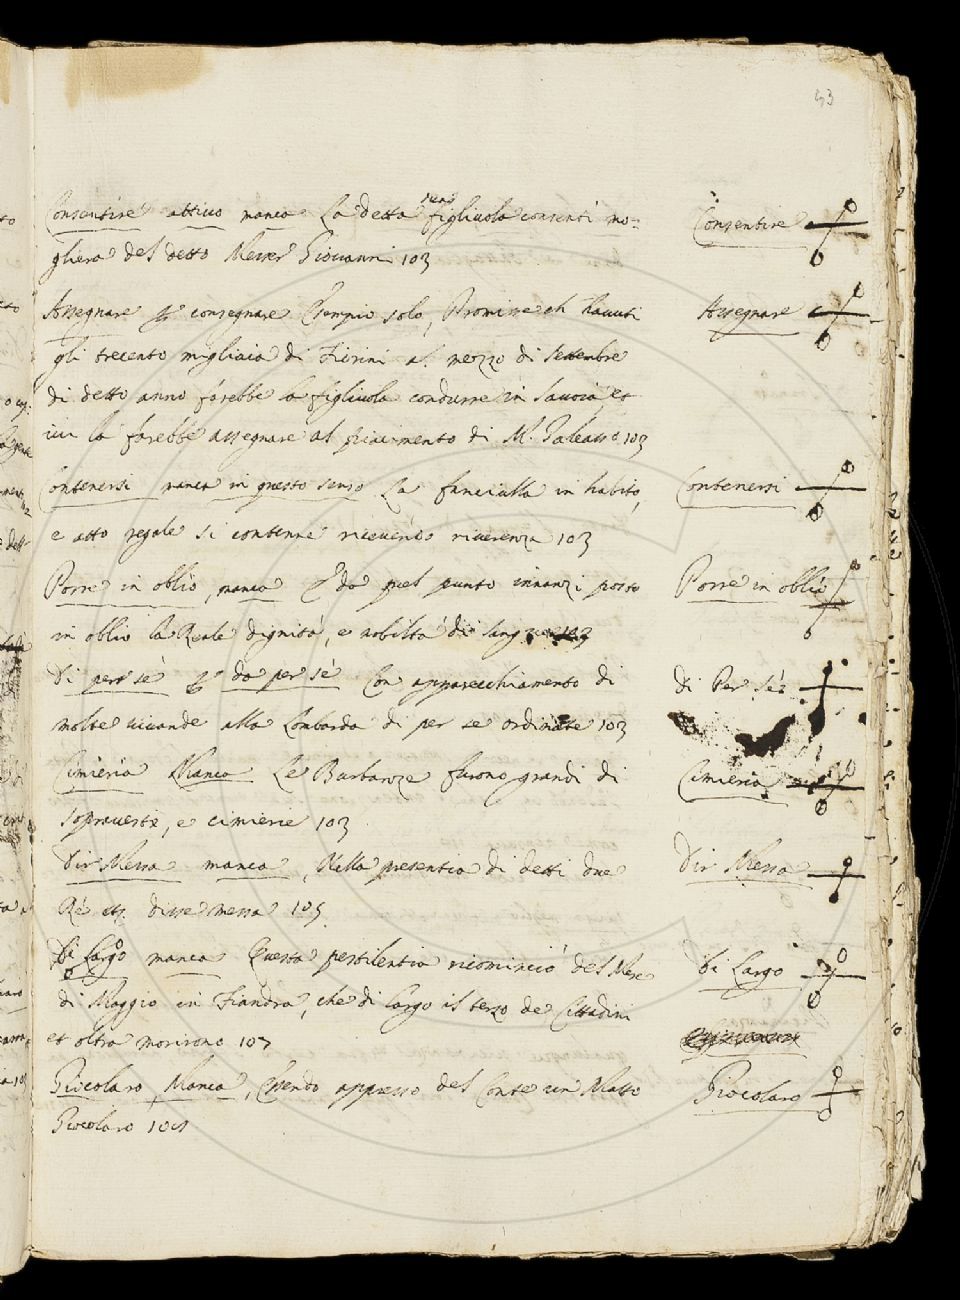 43
Consentire attivo manca La detta sua figliuola consentì mo=
gliera del detto Messer Giovanni 103
Consentire
Assegnare consegnare Esempio solo, Promise ch havuti
gli trecento migliaia di Fiorini al mezzo di settembre
di detto anno farebbe la figliuola condurre in Savoia, et
ivi la farebbe assegnare al piacimento di M. Galeasso 103
Assegnare
Contenersi manca in questo senso La fanciulla in habito,
e atto regale si contenne ricevendo riverenza 103
Contenersi
Porre in oblio, manca E da quel punto innanzi posto
in oblio la Reale dignità, e nobiltà di sangue 103
Porre in oblio
Di per sé da per sé Con apparecchiamento di
molte vivande alla Lombarda di per se ordinate 103
Di Per sé
Cimieria Manca Le Barbanze furono grandi di
sopraveste, e cimierie 103
Cimieria
Dir Messa manca, Nella presentia di detti due
Ré etc. disse messa 105
Dir Messa
Di Largo manca Questa pestilentia ricominciò del Mese
di Maggio in Fiandra, che di largo il terzo de Cittadini
et oltra morirono 107
Di Largo
Giocolaro, Manca, Essendo appresso del Conte un Matto
Giocolaro 109
Giocolaro